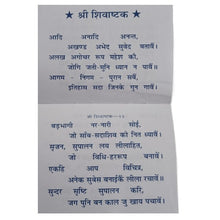 ★ श्री शिवाष्टक ★
आदि अनादि अनन्त,
अखण्ड अभेद सुवेद बतावैं।
अलख अगोचर रूप महेश कौ,
जोगि जती-मुनि ध्यान न पावैं॥
आगम - निगम - पुरान सबैं,
इतिहास सदा जिनके गुन गावैं।
श्रीशिवाष्टक
बड़भागी नर-नारी सोई,
जो सांब-सदाशिव कों नित ध्यावैं॥
सृजन, सुपालन लय लीलाहित,
जो विधि-हररूप बनावैं।
एकहि आप विचित्र,
अनेक सुवेस बनाईकैं लीला रचावैं॥
सुन्दर सृष्टि सुपालन करि,
जग पुनि बन काल जु खाय पचावैं।